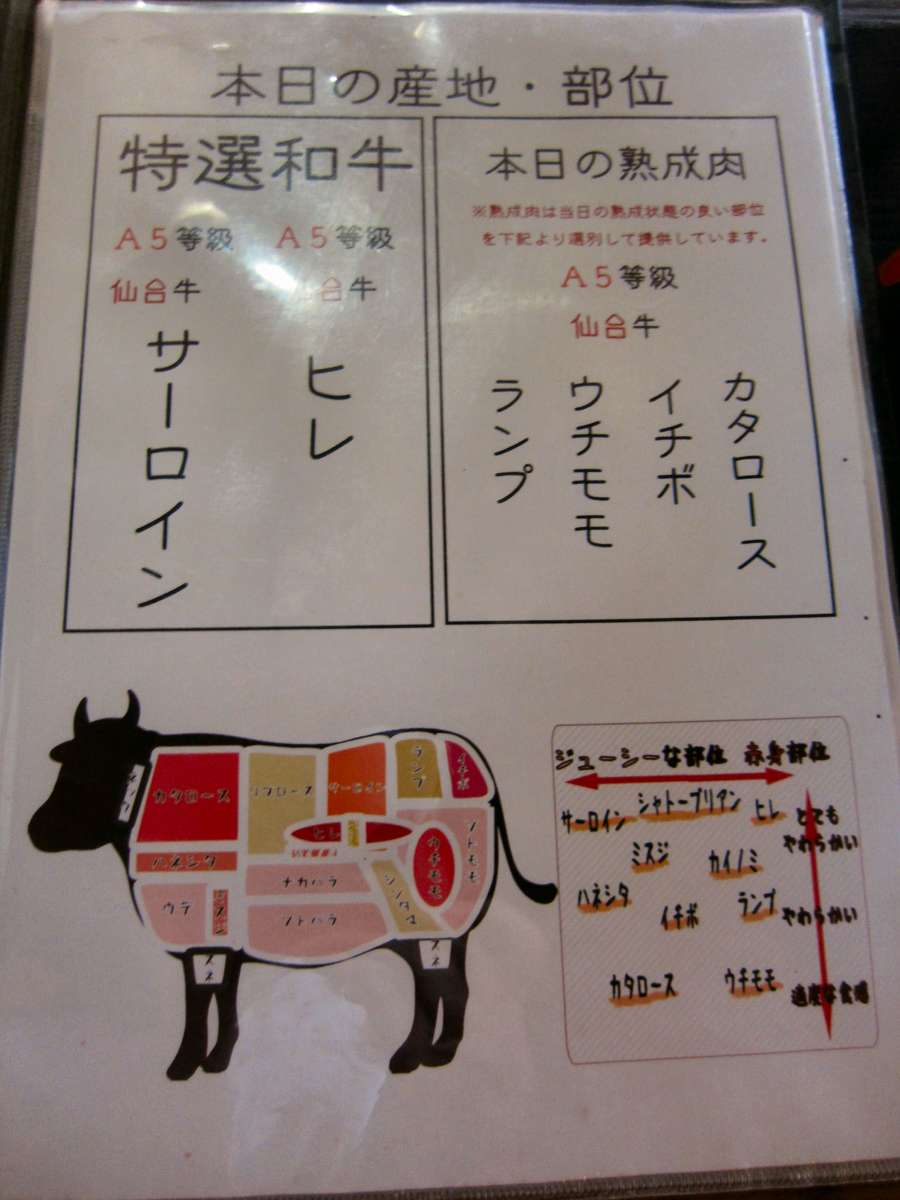 本日の産地・部位
特選和牛
A5等級
仙台牛
サーロイン
A5等級
仙台牛
ヒレ
本日の熟成肉
※熟成肉は当日の熟成状態の良い部位
を下記より選別して提供しています。
A5等級
仙台牛
カタロース
イチボ
ウチモモ
ランプ
ネック
カタロース
リブロース
サーロイン
ランプ
イチボ
ヒレ
ハネシタ
ウデ
ミスジ
ナカバラ
ソトバラ
シンタマ
ウチモモ
ソトモモ
スネ
スネ
ジューシーな部位 赤身部位
サーロイン シャトーブリアン ヒレ とても
やわらかい
ミスジ カイノミ
ハネシタ イチボ ランプ やわらかい
カタロース ウチモモ 適度な食感